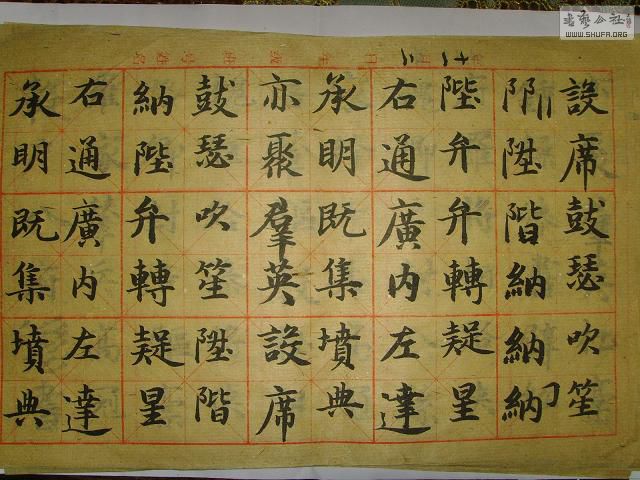 書藝公社
WWW.SHUFA.ORG
設席鼓瑟吹笙
陞階納納納
陛弁弁轉疑星
右通廣内左達
承明既集墳典
亦聚羣英設席
鼓瑟吹笙陞階
納陛弁轉疑星
右通廣内左達
承明既集墳典